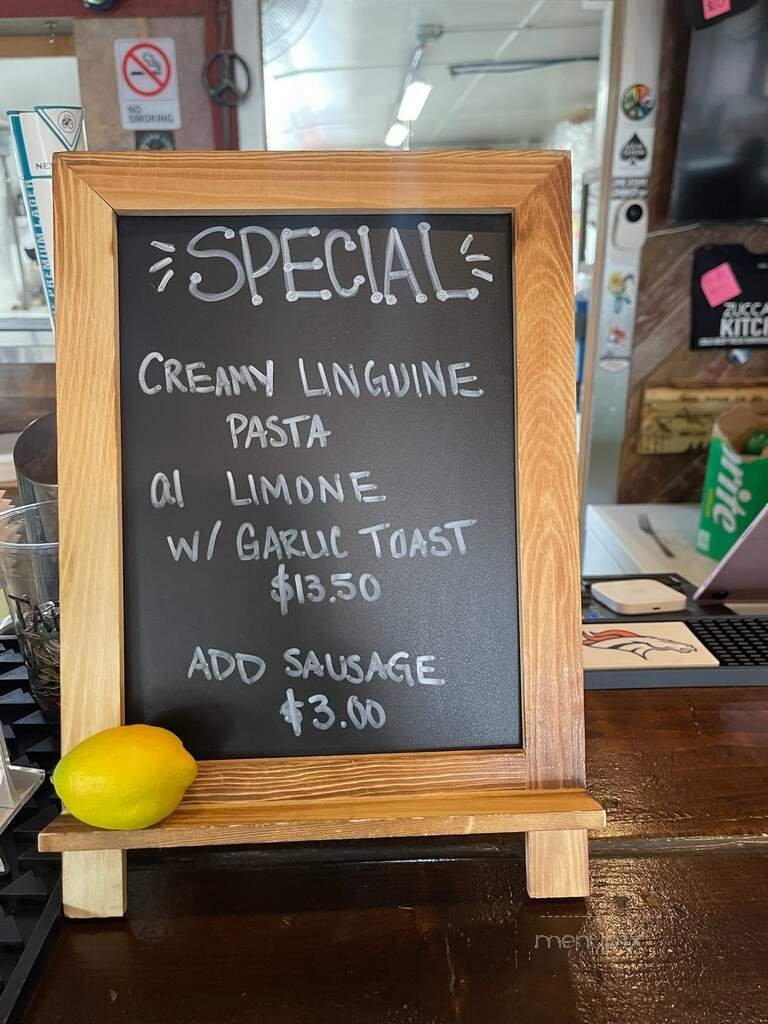 NO
SMOKING
PREMIUM LAGER
SPECIAL
CREAMY LINGUINE
PASTA
al LIMONE
W/ GARLIC TOAST
$13.50
ADD SAUSAGE
$3.00
ZUCCA
KITCH
Sprite
menupix